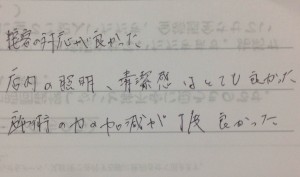 接客の対応が良かった
店内の照明、清潔感はとても良かった
施術の力の加減が丁度良かった